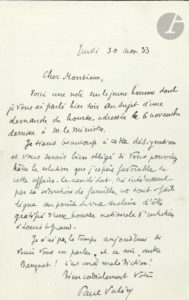 Jeudi 30 nov 33
Cher Monsieur,
Voici une note sur le jeune homme dont
je vous ai parlé hier soir au sujet d'une
demande de bourse adressée le 6 novembre
dernier à M. le Ministre.
Je tiens beaucoup à cette désignation
et vous serais bien obligé si vous pouviez
hâter la solution que j'espère favorable de
cette affaire. Le candidat, très intéressant
par sa situation de famille, est tout à fait
digne au point de vue scolaire d'être
gratifié d'une bourse nationale d'entretien
Je n'ai pas le temps aujourd'hui de
venir vous en parler, et ce soir, autre
Banquet ! C'est une malédiction !
Bien cordialement vôtre
Paul Valéry